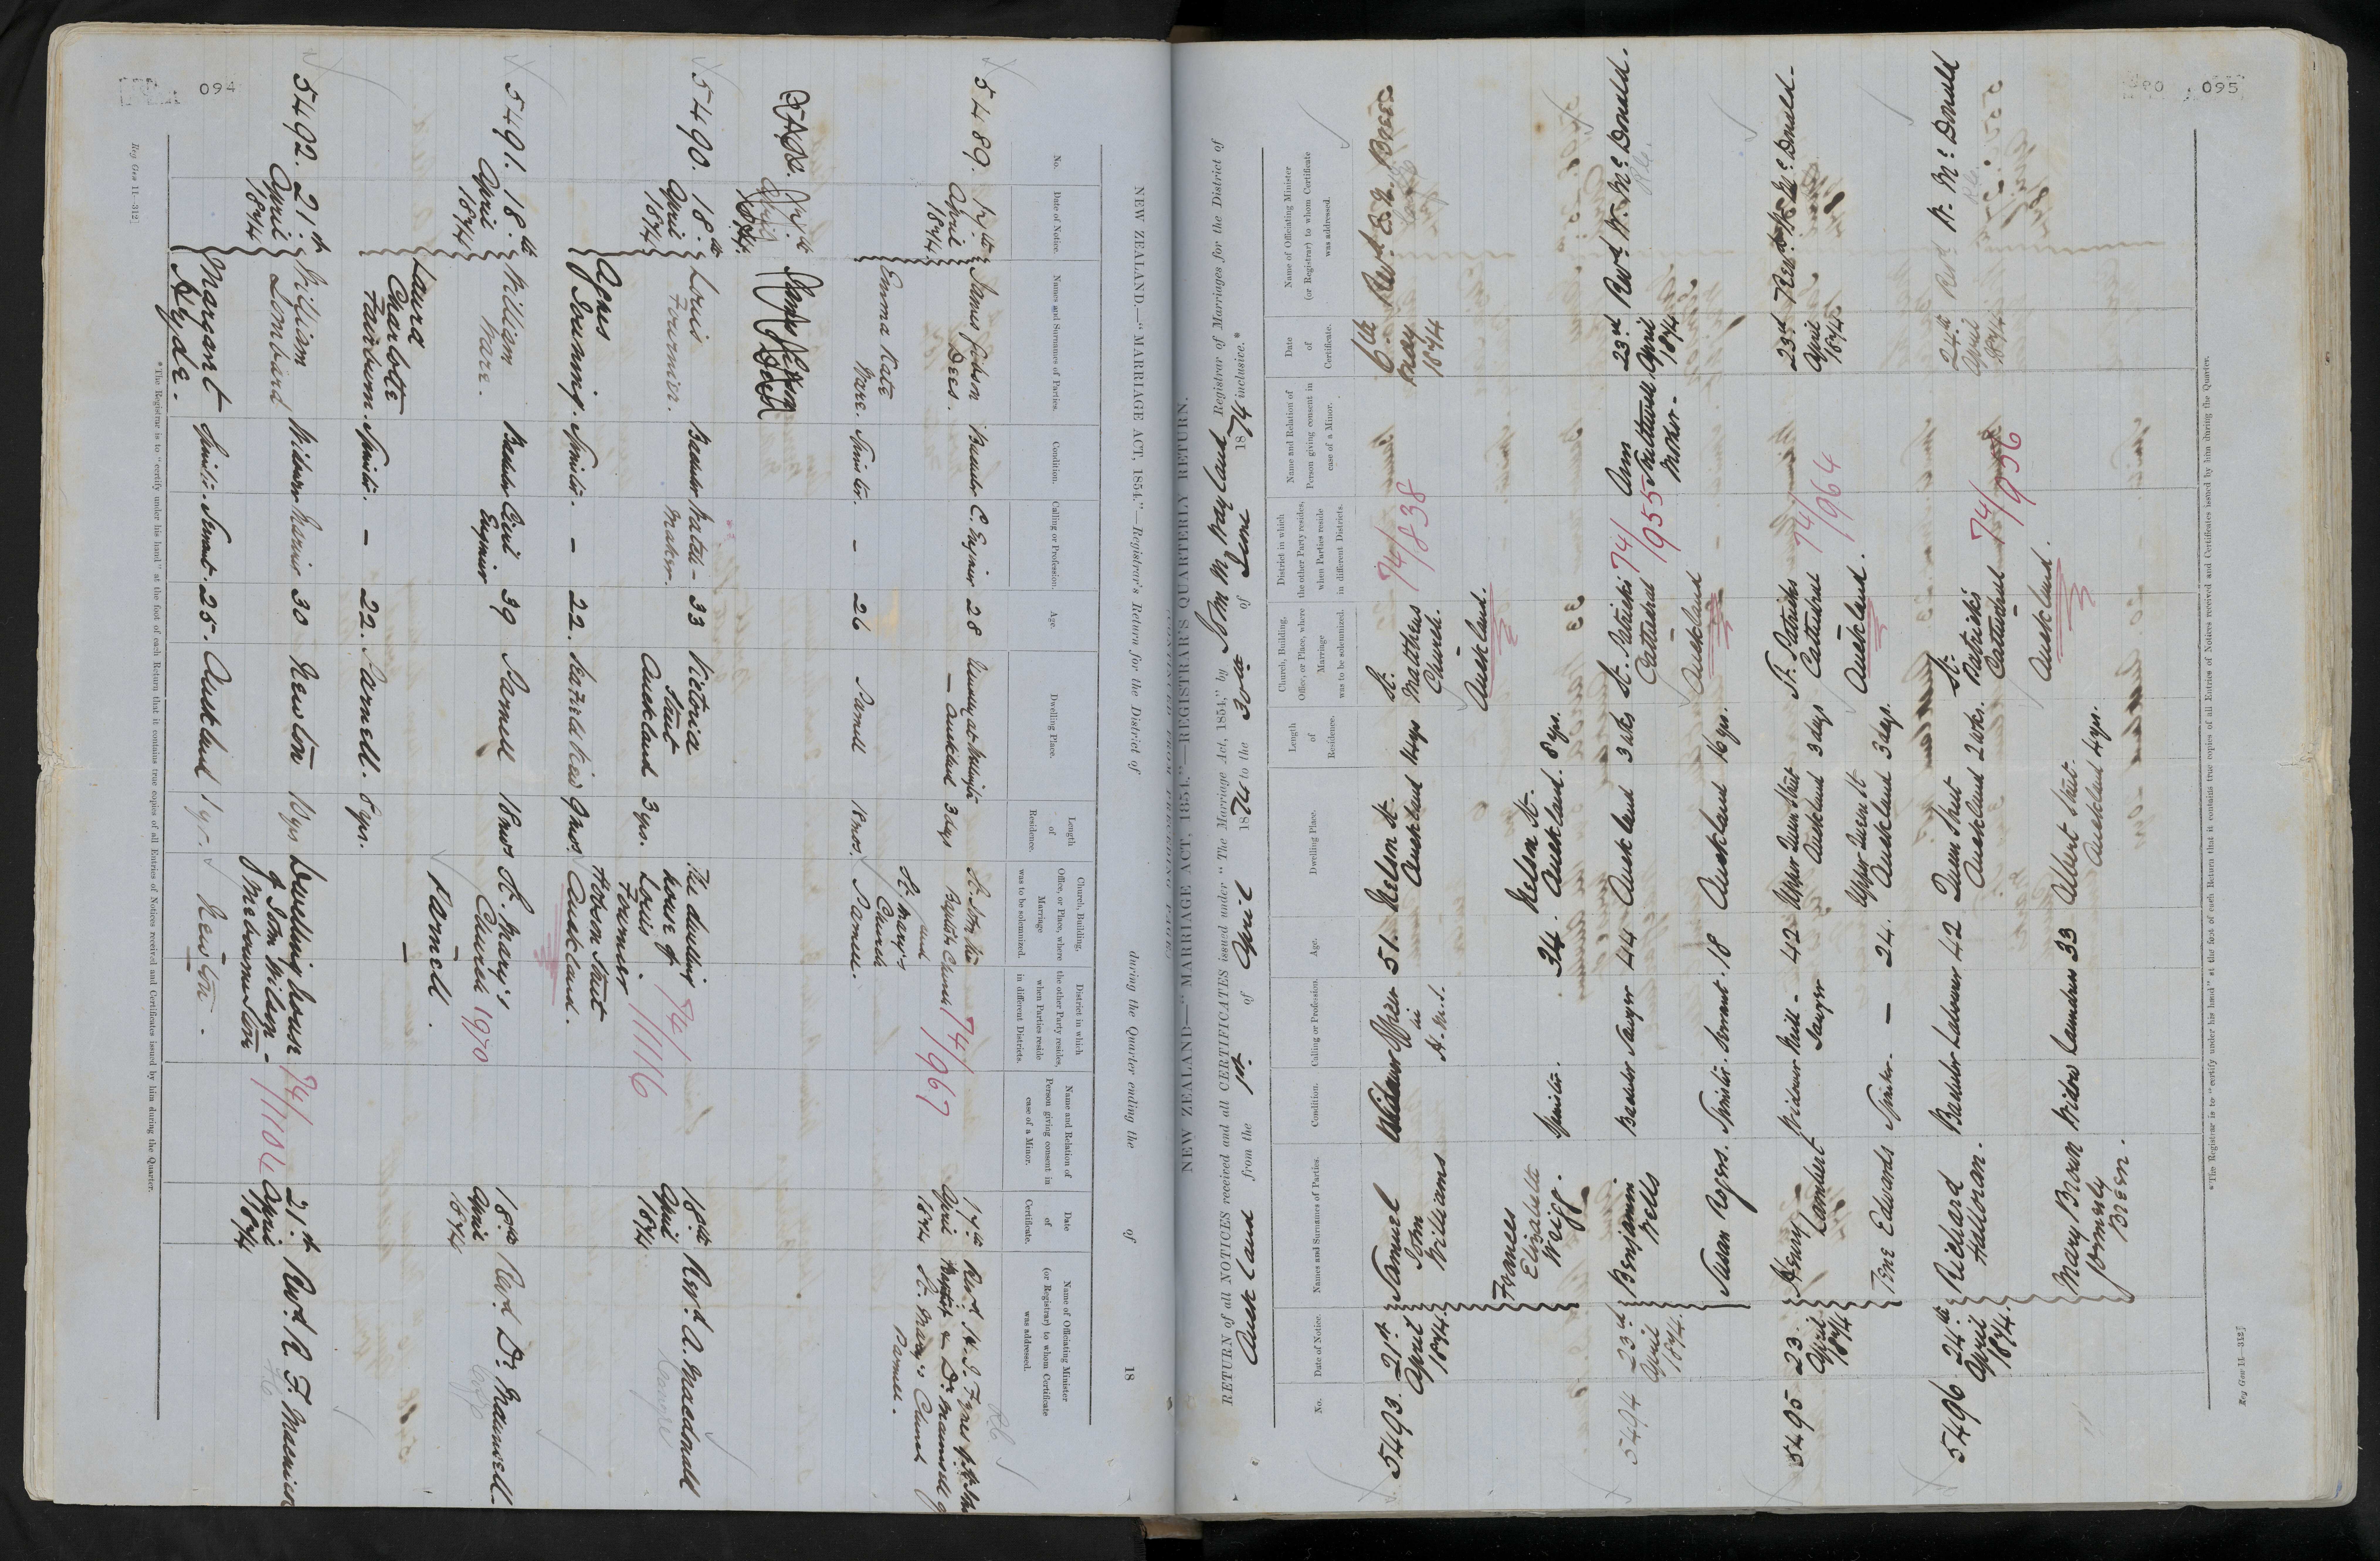 094
NEW ZEALAND.—"MARRIAGE ACT, 1854."—Registrar's Return for the District of during the Quarter ending the of 18
No.
Date of Notice.
Names and Surnames of Parties.
Condition.
Calling or Profession.
Age.
Dwelling Place.
Length of Residence.
Church, Building, Office, or Place, where Marriage was to be solemnized.
District in which the other Party resides, when Parties reside in different Districts.
Name and Relation of Person giving consent in case of a Minor.
Date of Certificate.
Name of Officiating Minister (or Registrar) to whom Certificate was addressed.
5489. 17th April 1874
James
Dees.
Bachelor C. Engineer 28
Auckland 3 days
Baptist Church
and
St. Mary's
Church
Parnell.
74/967
17th April 1874
Emma Kate
Ware. Spinster. – 26 Parnell 18 mos.
St. Mary's Church
Parnell.
5490. 18th April 1874
Louis
Fournier.
Bachelor Watch-
maker.
33 Victoria
Street
Auckland 3 yrs.
The dwelling
house of
Louis
Fournier
Hobson Street
Auckland.
74/1116
18th April 1874
Revd. A. Macdonald
Agnes
Dunning. Spinster. – 22. 9 mos.
5491. 18th April 1874
William
Ware.
Bachelor Civil
Engineer
39 Parnell 18 mos
St. Mary's
Church
Parnell.
1970
18th April 1874
Revd. Dr. Maunsell.
Laura
Charlotte
Fairburn. Spinster. – 22. Parnell. 8 yrs.
5492. 21st April 1874
William
Lombard
Widower 30 Newton
Dwelling house
of John Wilson
Newton.
74/1104
21st April 1874
Revd. R. F. Macnicol
Margaret
Hyde.
Spinster. Servant. 25. Auckland 1 yr.
*The Registrar is to "certify under his hand" at the foot of each Return that it contains true copies of all Entries of Notices received and Certificates issued by him during the Quarter.
Reg Gen 11—312]
095
NEW ZEALAND—"MARRIAGE ACT, 1854."—REGISTRAR'S QUARTERLY RETURN.
(CONTINUED FROM PRECEDING PAGE)
RETURN of all NOTICES received and all CERTIFICATES issued under "The Marriage Act, 1854," by John M. Wayland Registrar of Marriages for the District of
Auckland from the 1st of April 1874 to the 30th of June 1874 inclusive.*
No.
Date of Notice.
Names and Surnames of Parties.
Condition.
Calling or Profession.
Age.
Dwelling Place.
Length of Residence.
Church, Building, Office, or Place, where Marriage was to be solemnized.
District in which the other Party resides, when Parties reside in different Districts.
Name and Relation of Person giving consent in case of a Minor.
Date of Certificate.
Name of Officiating Minister (or Registrar) to whom Certificate was addressed.
5493. 21st April 1874.
Samuel
John
Williams
Widower Officer
in
H.M.S.
51. Nelson St.
Auckland 14 yrs
St.
Matthews
Church.
Auckland.
74/838
6th May 1874
Revd.
Frances
Elizabeth
Wrigg.
Spinster. 34. Nelson St.
Auckland. 8 yrs.
5494 23rd April 1874.
Benjamin
Wells
Bachelor Sawyer 44 Auckland 3 wks
St. Patricks
Cathedral
Auckland
74/955
Ann
Mother.
23rd April 1874
Revd. W. McDonald.
Susan Rogers. Spinster. Servant. 18 Auckland 16 yrs.
5495 23 April 1874
Henry
Lambert
Widower Mill-
Sawyer
42 Upper Queen Street
Auckland 3 days
St. Patricks
Cathedral
Auckland.
74/964
23rd April 1874.
Revd. W. McDonald.
Jane Edwards Spinster. – 24. Upper Queen St
Auckland 3 days.
5496 24th April 1874.
Richard
Hallinan.
Bachelor Labourer 42 Queen Street
Auckland 2 wks.
St.
Patrick's
Cathedral
Auckland.
74/956
24th April 1874.
Revd W. McDonald
Mary Bowen
formerly
Breen.
Widow Laundress 33 Albert Street.
Auckland 4 yrs.
*The Registrar is to "certify under his hand" at the foot of each Return that it contains true copies of all Entries of Notices received and Certificates issued by him during the Quarter.
Reg Gen 11—312]